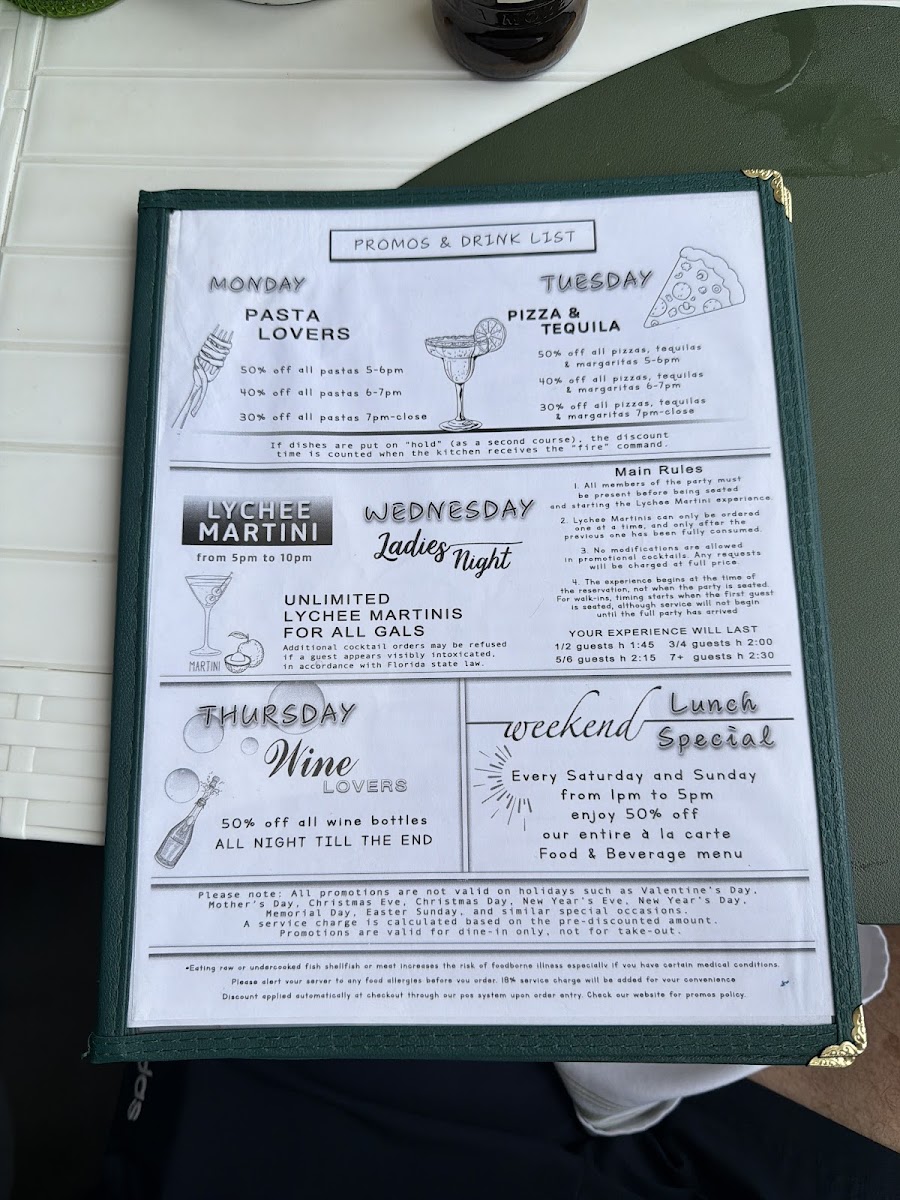 PROMOS & DRINK LIST
MONDAY
PASTA
LOVERS
50% off all pastas 5-6pm
40% off all pastas 6-7pm
30% off all pastas 7pm-close
TUESDAY
PIZZA &
TEQUILA
50% off all pizzas, tequilas
& margaritas 5-6pm
40% off all pizzas, tequilas
& margaritas 6-7pm
30% off all pizzas, tequilas
& margaritas 7pm-close
If dishes are put on "hold" (as a second course), the discount
time is counted when the kitchen receives the "fire" command.
LYCHEE
MARTINI
from 5pm to 10pm
WEDNESDAY
Ladies
Night
MARTINI
UNLIMITED
LYCHEE MARTINIS
FOR ALL GALS
Additional cocktail orders may be refused
if a guest appears visibly intoxicated,
in accordance with Florida state law.
Main Rules
1. All members of the party must
be present before being seated
and starting the Lychee Martini experience.
2. Lychee Martinis can only be ordered
one at a time, and only after the
previous one has been fully consumed.
3. No modifications are allowed
in promotional cocktails. Any requests
will be charged at full price.
4. The experience begins at the time of
the reservation, not when the party is seated.
For walk-ins, timing starts when the first guest
is seated, although service will not begin
until the full party has arrived
YOUR EXPERIENCE WILL LAST
1/2 guests h 1:45 3/4 guests h 2:00
5/6 guests h 2:15 7+ guests h 2:30
THURSDAY
Wine
LOVERS
50% off all wine bottles
ALL NIGHT TILL THE END
weekend Lunch
Special
Every Saturday and Sunday
from 1pm to 5pm
enjoy 50% off
our entire à la carte
Food & Beverage menu
Please note: All promotions are not valid on holidays such as Valentine's Day,
Mother's Day, Christmas Eve, Christmas Day, New Year's Eve, New Year's Day,
Memorial Day, Easter Sunday, and similar special occasions.
A service charge is calculated based on the pre-discounted amount.
Promotions are valid for dine-in only, not for take-out.
*Eating raw or undercooked fish shellfish or meat increases the risk of foodborne illness especially if you have certain medical conditions.
Please alert your server to any food allergies before you order. 18% service charge will be added for your convenience
Discount applied automatically at checkout through our pos system upon order entry. Check our website for promos policy.